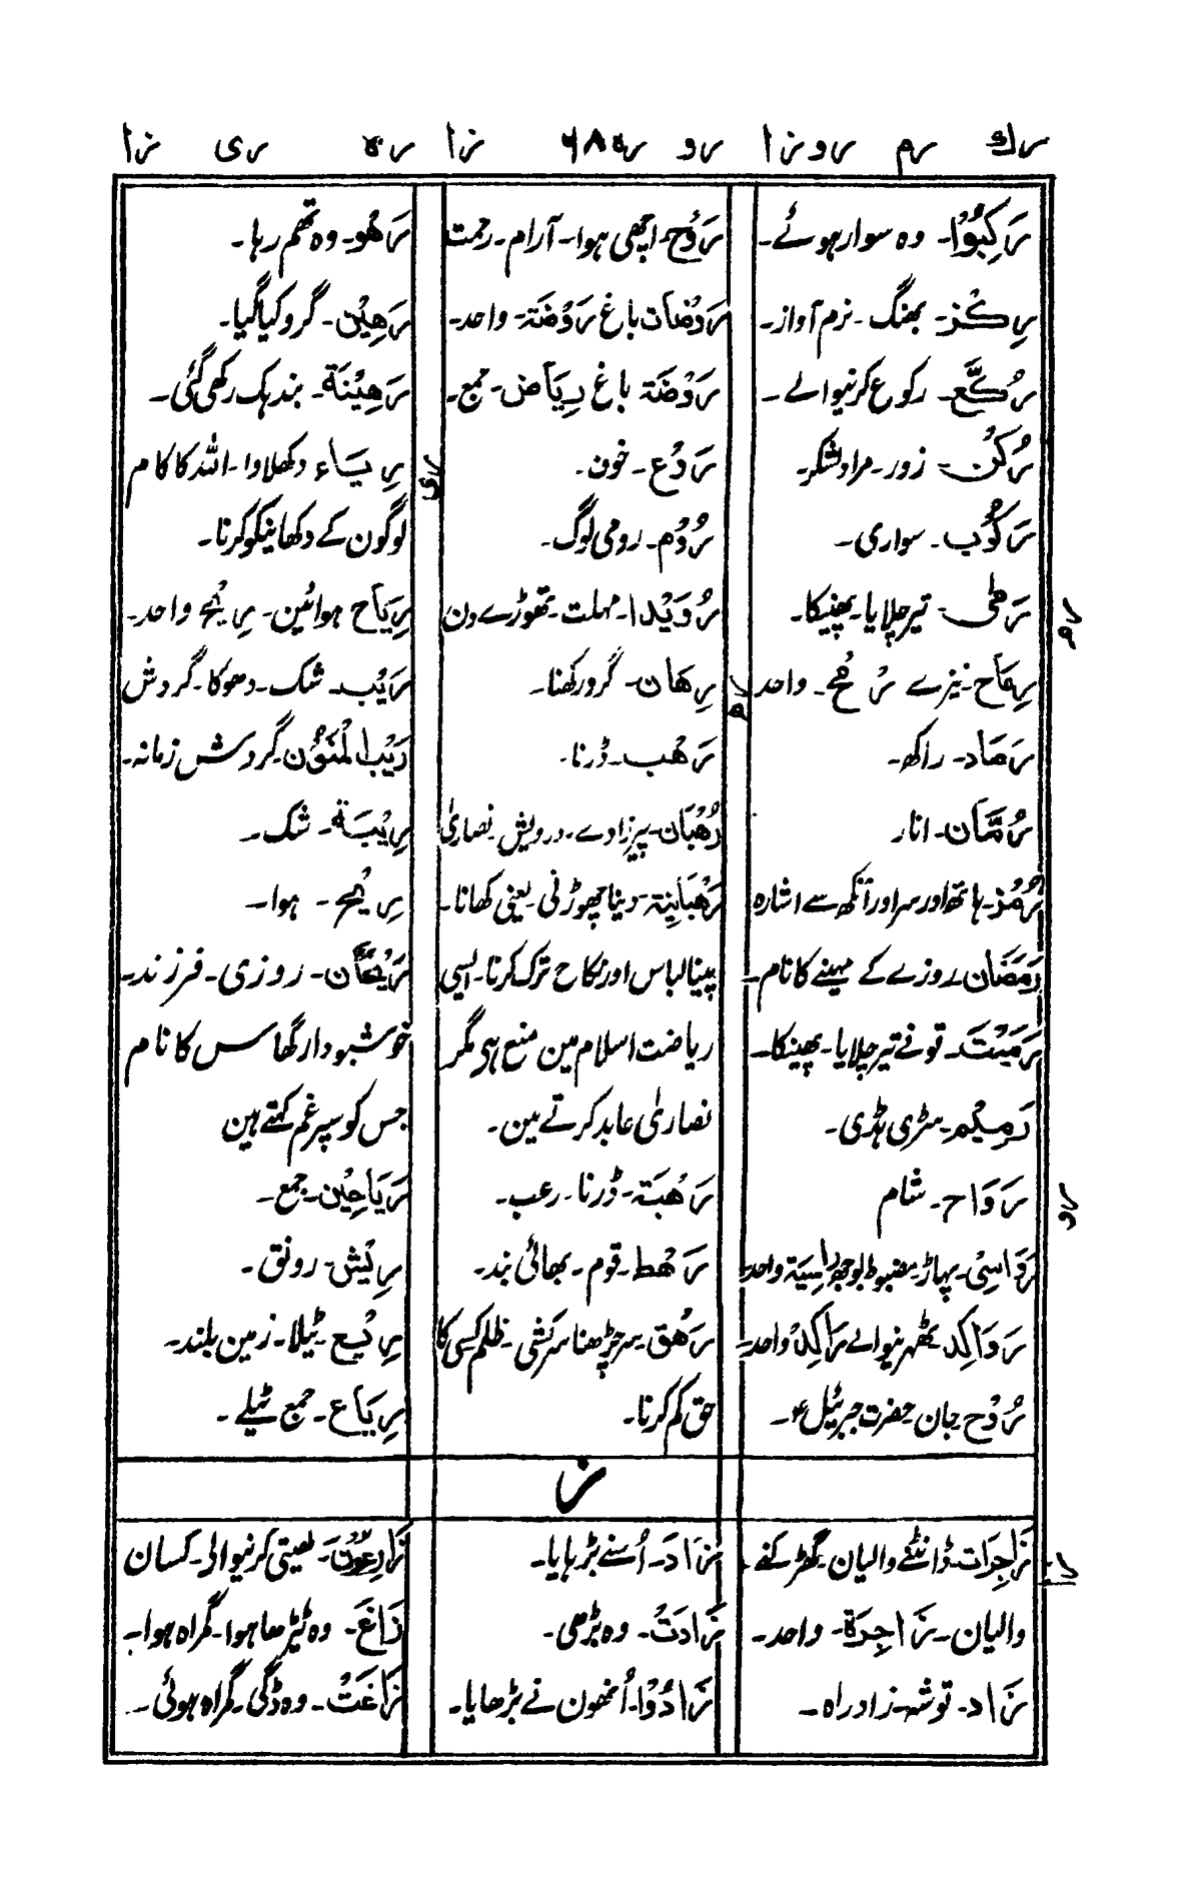 رك رم رو زا رو ۶۸۵ ره زا ره ری زا
رَكِبُوْا۔ وہ سوار ہوئے۔
رِكْز۔ بھنگ۔ نرم آواز۔
رُكَّع۔ رکوع کرنیوالے۔
رُكْن۔ زور۔ مراد لشکر۔
رَكُوْب۔ سواری۔
رَمٰى۔ تیر چلایا۔ پھینکا۔
رم
رِمَاح۔ نیزے رُمْح۔ واحد
رَمَاد۔ راکھ۔
رُمَّان۔ انار
رَمْز۔ ہاتھ اور سر اور آنکھ سے اشارہ
رَمَضَان روزے کے مہینے کا نام۔
رَمَيْتَ۔ تو نے تیر چلایا۔ پھینکا۔
رَمِيْم۔ سڑی ہڈی۔
رَوَاح۔ شام
رو
رَوَاسِىْ۔ پہاڑ۔ مضبوط بوجھ رَاسِيَة واحد
رَوَاكِد ٹھہرنیوالے رَاكِدْ واحد۔
رُوْح جان حضرت جبرئیلؑ۔
رَوْح۔ اچھی ہوا۔ آرام۔ رحمت
رَوْضَات باغ رَوْضَة۔ واحد۔
رَوْضَة باغ رِيَاض۔ جمع۔
رَوْع۔ خون۔
رُوْم۔ رومی لوگ۔
رُوَيْدا۔ مہلت۔ تھوڑے دن
ره
رِهَان۔ گرو رکھنا۔
رَهْب۔ ڈرنا۔
رُهْبَان۔ پیرزادے۔ درویش نصاریٰ
رَهْبَانِيَة۔ دنیا چھوڑنی یعنی کھانا۔
پینا لباس اور نکاح ترک کرنا۔ ایسی
ریاضت اسلام مین منع ہی مگر
نصاریٰ عابد کرتے مین۔
رَهْبَة۔ ڈرنا۔ رعب۔
رَهْط۔ قوم۔ بھائی بند۔
رَهْق۔ سر چڑھنا سرکشی۔ ظلم کسی کا
حق کم کرنا۔
رَهْو۔ وہ تھم رہا۔
رَهِيْن۔ گرو کیا گیا۔
رَهِيْنَة۔ بندہک رکھی گئی۔
ری
رِيَاء دکھلاوا۔ اللہ کا کام
لوگون کے دکھانیکو کرنا۔
رِيَاح ہوائین۔ رِيْح واحد۔
رَيْب۔ شک۔ دھوکا۔ گردش
رَيْبَ الْمَنُوْن گردش زمانہ۔
رِيْبَة۔ شک۔
رِيْح۔ ہوا۔
رَيْحَان۔ روزی۔ فرزند۔
خوشبودار گھاس کا نام
جس کو سپرغم کہتے ہین
رَيَاحِيْن۔ جمع۔
رِيْش۔ رونق۔
رِيْع۔ ٹیلا۔ زمین بلند۔
رِيَاع۔ جمع ٹیلے۔
ز
زا
زَاجِرَات۔ ڈانٹنے والیان۔ گھڑکنے
والیان۔ زَاجِرَة۔ واحد۔
زَاد۔ توشہ۔ زاد راہ۔
زَادَ۔ اُسنے بڑہایا۔
زَادَتْ۔ وہ بڑھی۔
زَادُوْا۔ اُنھون نے بڑھایا۔
زَارِعُوْنَ۔ کھیتی کرنیوالی۔ کسان
زَاغَ۔ وہ ٹیڑھا ہوا۔ گمراہ ہوا۔
زَاغَتْ۔ وہ ڈگی۔ گمراہ ہوئی۔